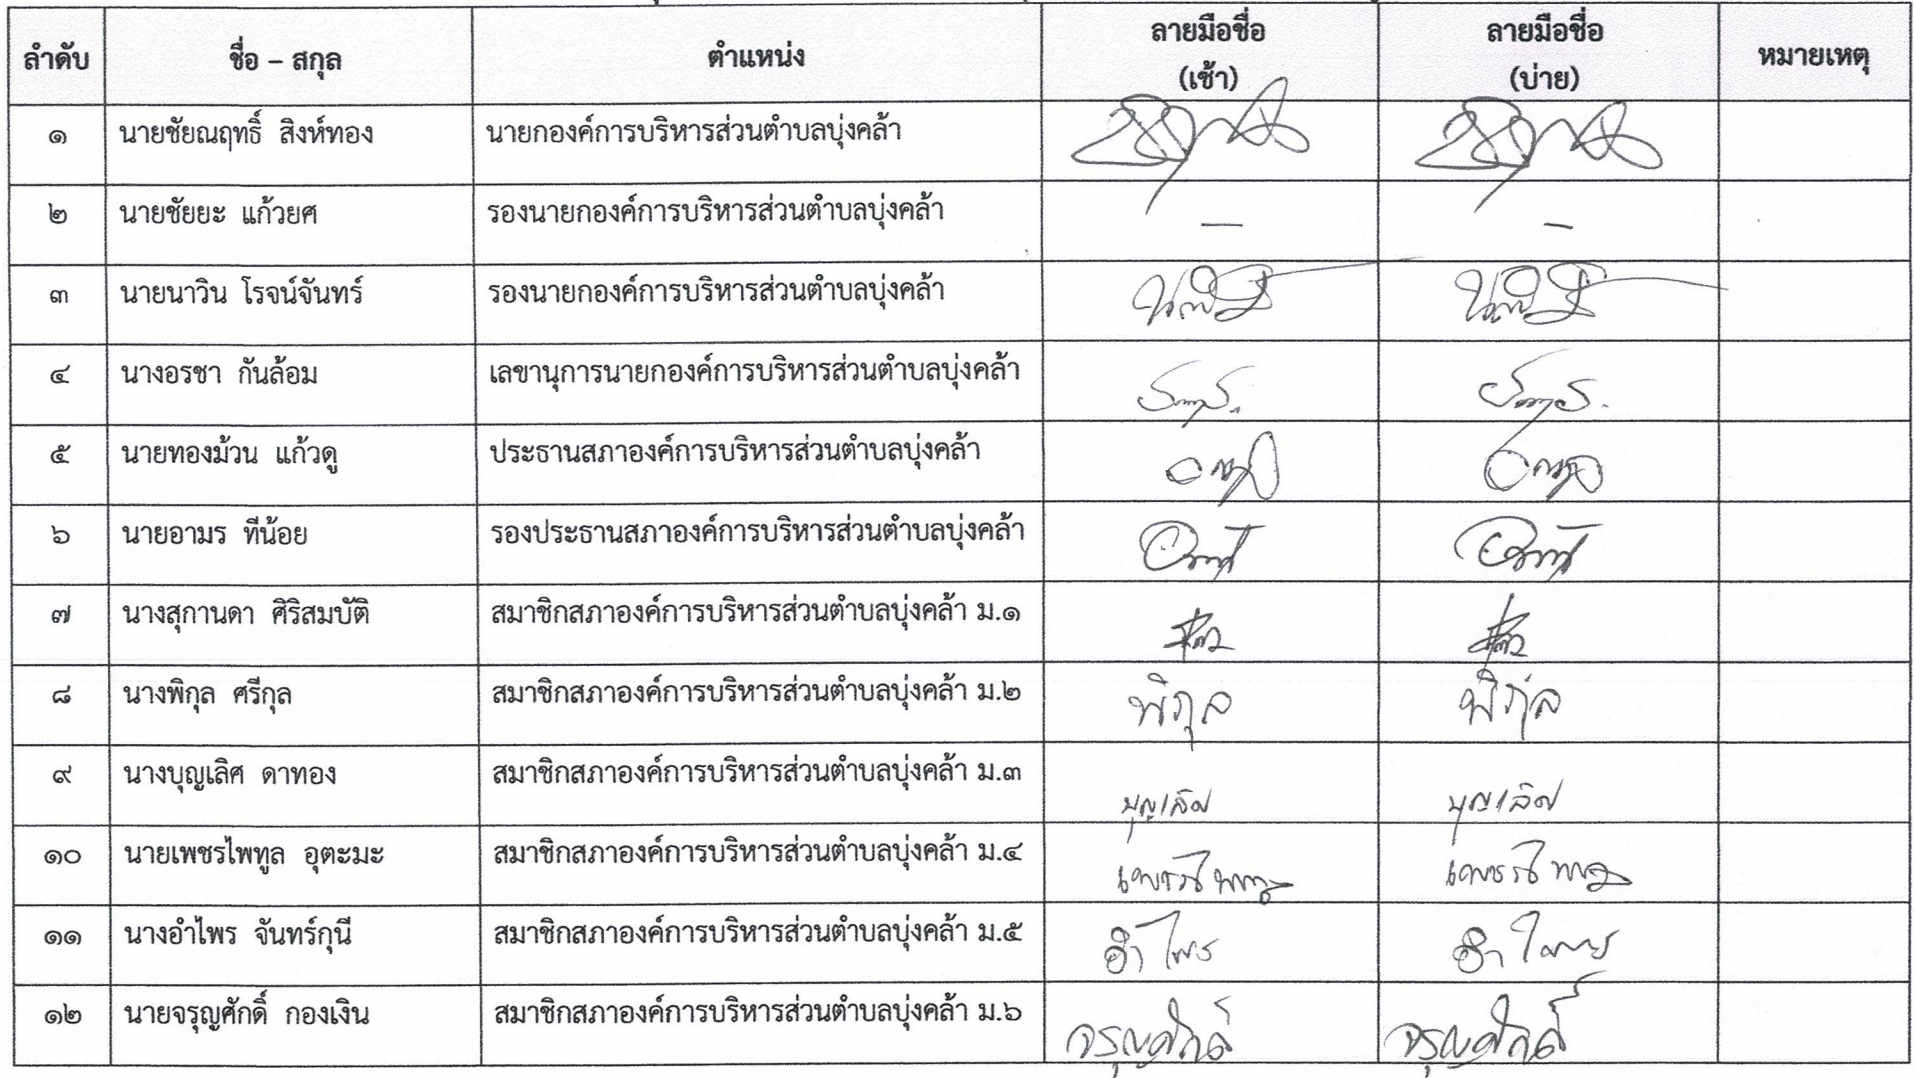 ลำดับ ชื่อ – สกุล ตำแหน่ง ลายมือชื่อ (เช้า) ลายมือชื่อ (บ่าย) หมายเหตุ
๑ นายชัยณฤทธิ์ สิงห์ทอง นายกองค์การบริหารส่วนตำบลบุ่งคล้า
๒ นายชัยยะ แก้วยศ รองนายกองค์การบริหารส่วนตำบลบุ่งคล้า — —
๓ นายนาวิน โรจน์จันทร์ รองนายกองค์การบริหารส่วนตำบลบุ่งคล้า
๔ นางอรชา กันล้อม เลขานุการนายกองค์การบริหารส่วนตำบลบุ่งคล้า
๕ นายทองม้วน แก้วดู ประธานสภาองค์การบริหารส่วนตำบลบุ่งคล้า
๖ นายอามร ทีน้อย รองประธานสภาองค์การบริหารส่วนตำบลบุ่งคล้า
๗ นางสุกานดา ศิริสมบัติ สมาชิกสภาองค์การบริหารส่วนตำบลบุ่งคล้า ม.๑
๘ นางพิกุล ศรีกุล สมาชิกสภาองค์การบริหารส่วนตำบลบุ่งคล้า ม.๒ พิกุล พิกุล
๙ นางบุญเลิศ ดาทอง สมาชิกสภาองค์การบริหารส่วนตำบลบุ่งคล้า ม.๓ บุญเลิศ บุญเลิศ
๑๐ นายเพชรไพทูล อุตะมะ สมาชิกสภาองค์การบริหารส่วนตำบลบุ่งคล้า ม.๔
๑๑ นางอำไพร จันทร์กุนี สมาชิกสภาองค์การบริหารส่วนตำบลบุ่งคล้า ม.๕ อำไพร อำไพร
๑๒ นายจรุญศักดิ์ กองเงิน สมาชิกสภาองค์การบริหารส่วนตำบลบุ่งคล้า ม.๖ จรุญศักดิ์ จรุญศักดิ์